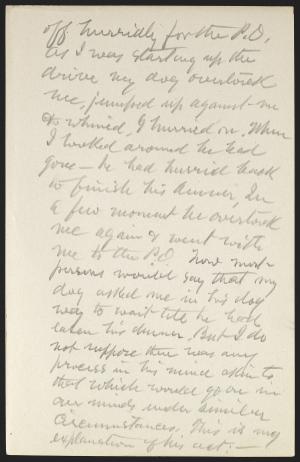 off hurridly for the P.O.
As I was starting up the
drive my dog overtook
me, jumped up against me
& whined, I hurried on. When
I looked around he had
gone — he had hurrid back
to finish his dinner, In
a few moment he overtook
me again & went with
me to the P.O Now most
persons would say that my
dog asked me in his dog
way to wait till he had
taken his dinner. But I do
not suppose there was any
process in his mind akin to
that which would go on in
our minds under similar
circumstances. This is my
explanation of his act: —